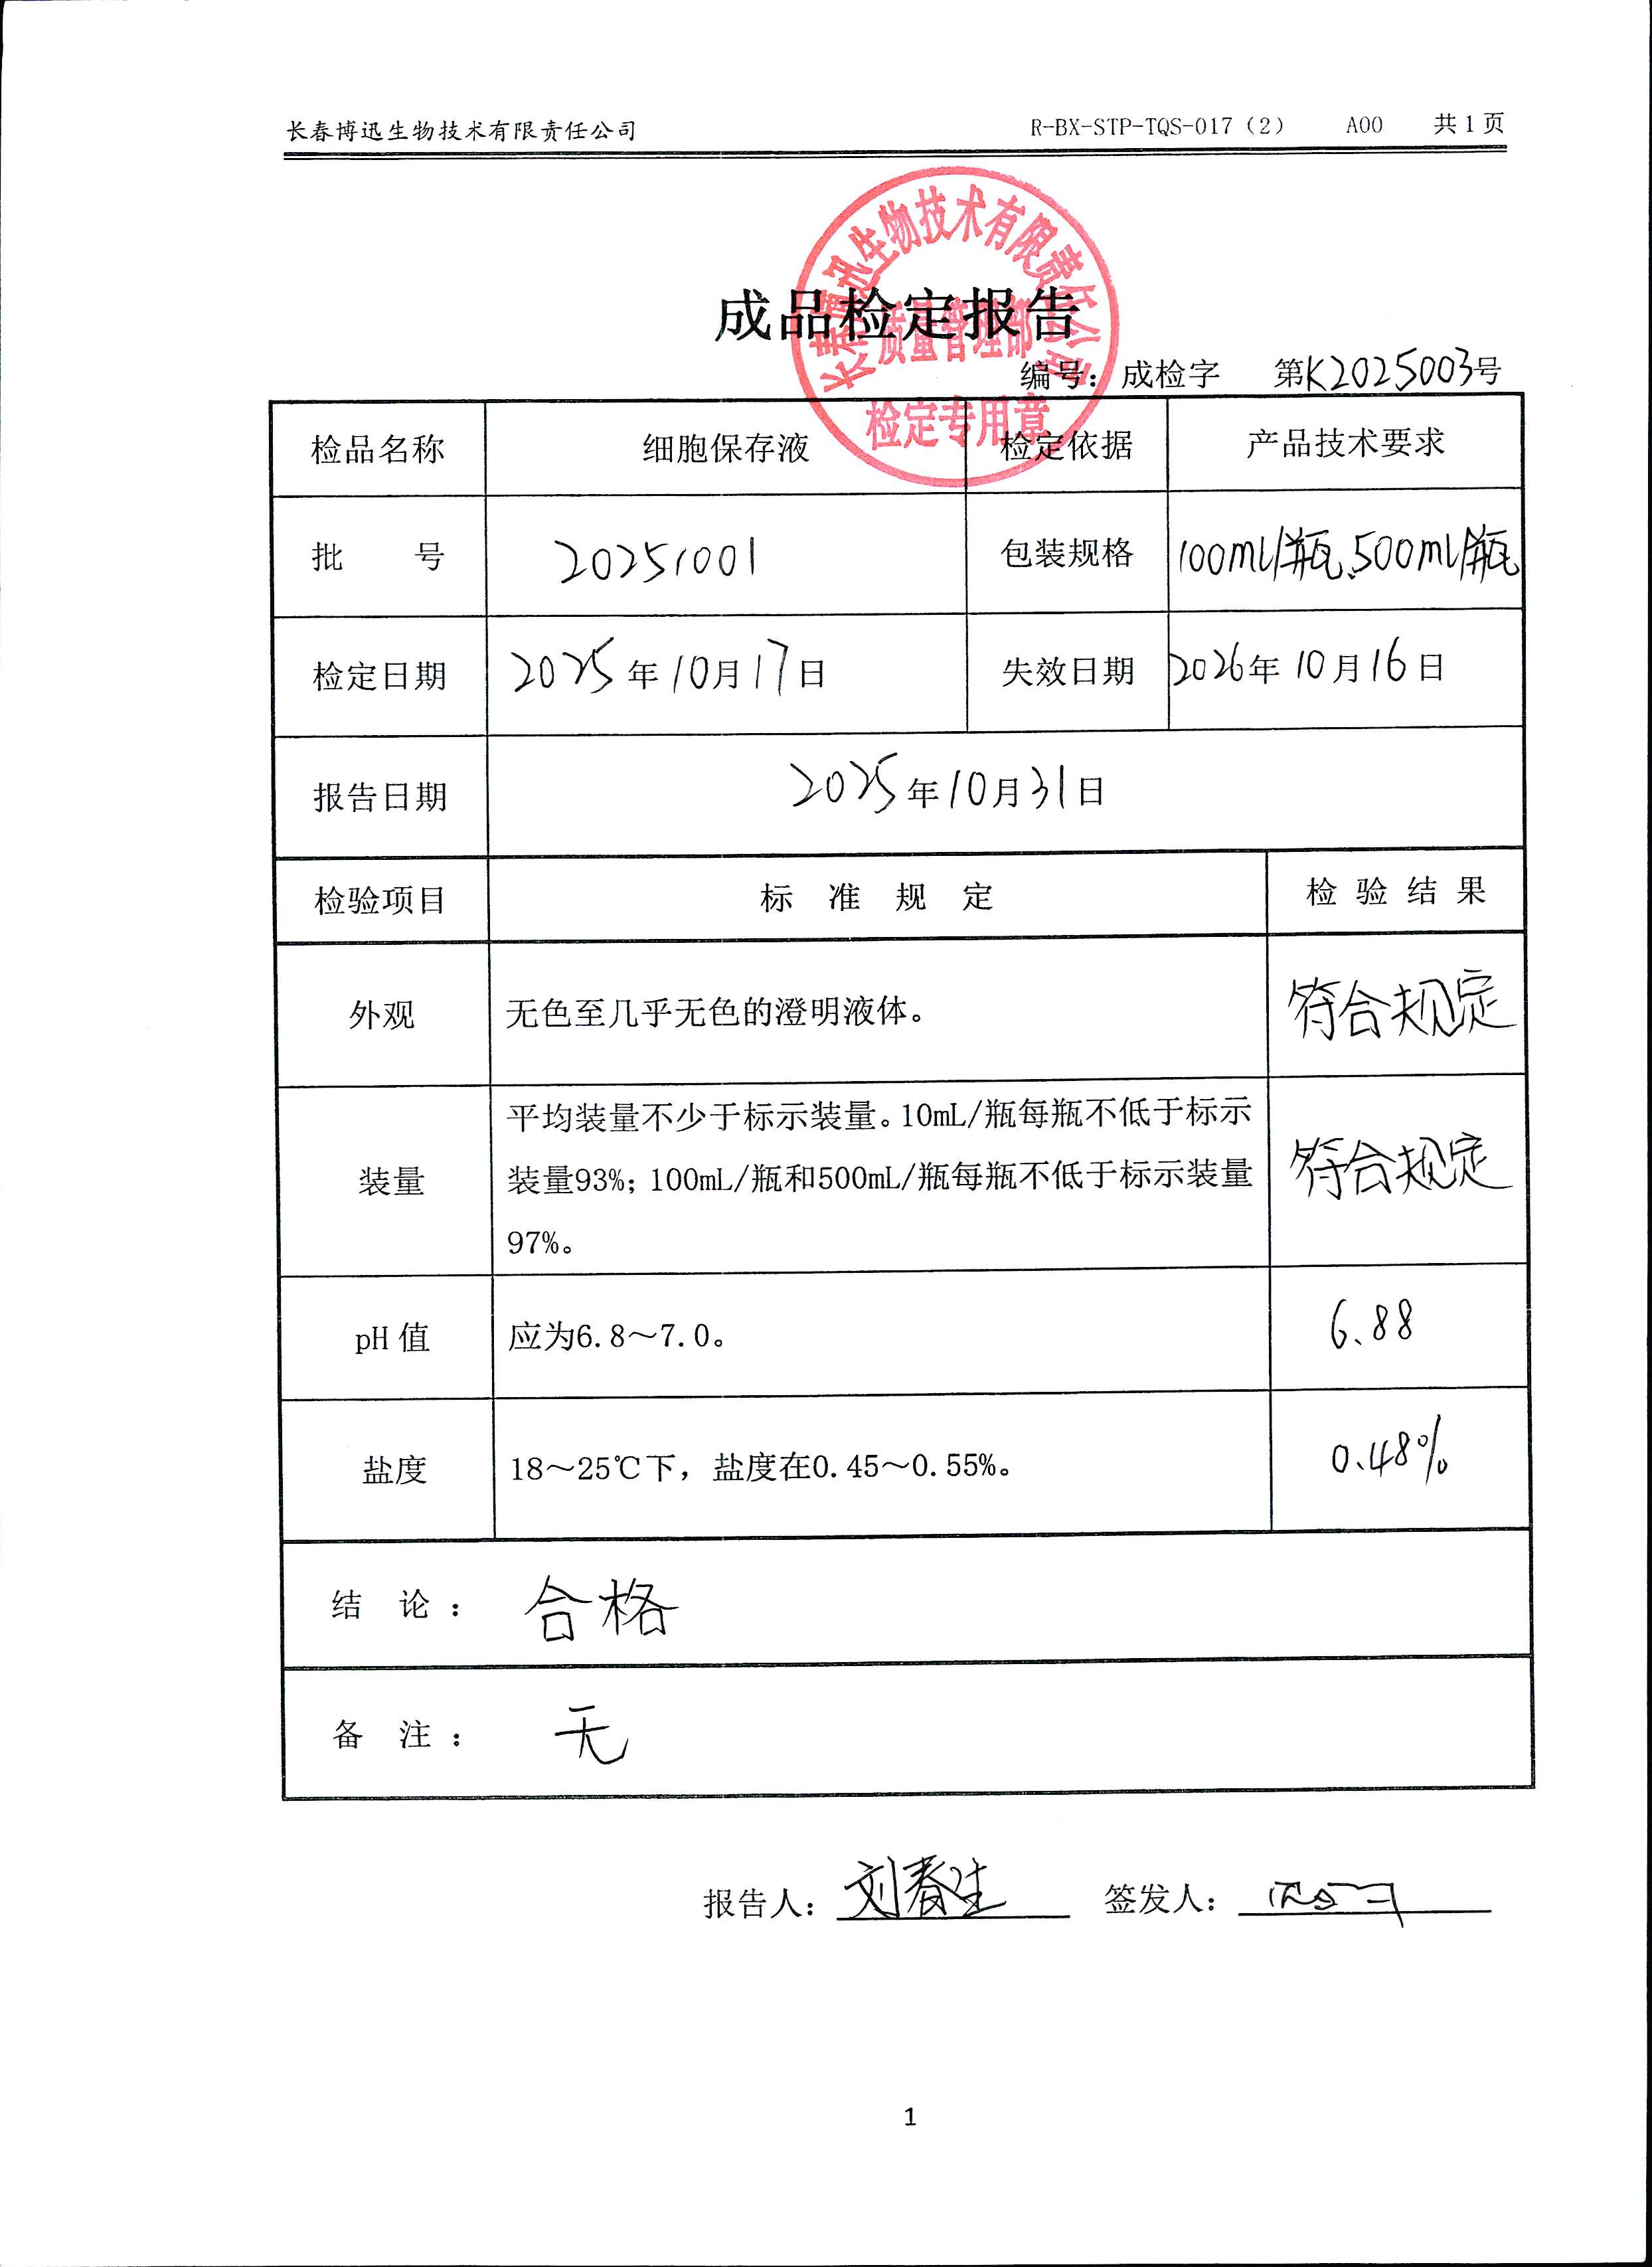 长春博迅生物技术有限责任公司 R-BX-STP-TQS-017（2） A00 共1页
长春博迅生物技术有限责任公司
质量管理部
检定专用章
成品检定报告
编号：成检字 第K2025003号
检品名称 细胞保存液 检定依据 产品技术要求
批 号 20251001 包装规格 100ml/瓶、500ml/瓶
检定日期 2025年10月17日 失效日期 2026年10月16日
报告日期 2025年10月31日
检验项目 标 准 规 定 检 验 结 果
外观 无色至几乎无色的澄明液体。 符合规定
装量 平均装量不少于标示装量。10mL/瓶每瓶不低于标示
装量93%；100mL/瓶和500mL/瓶每瓶不低于标示装量
97%。
符合规定
pH 值 应为6.8～7.0。 6.88
盐度 18～25℃下，盐度在0.45～0.55%。 0.48%
结 论： 合格
备 注： 无
报告人：刘春生 签发人：
1